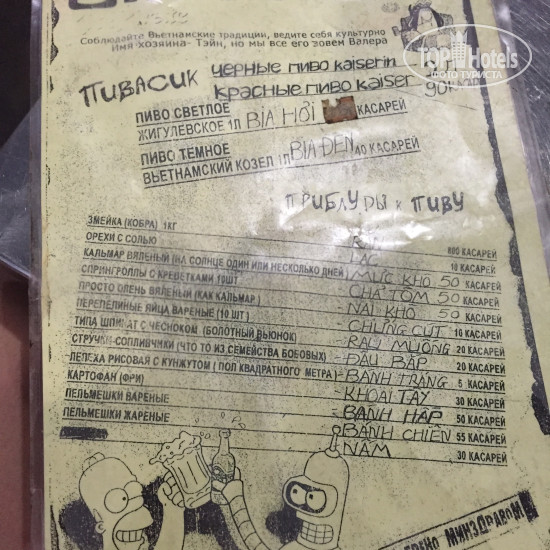 Соблюдайте Вьетнамские традиции, ведите себя культурно
Имя хозяина- Тэйн, но мы все его зовем Валера
TopHotels
ФОТО ТУРИСТА
ПИВАСИК
ЧЕРНЫЕ ПИВО kaiserin
КРАСНЫЕ ПИВО kaiser
ПИВО СВЕТЛОЕ
ЖИГУЛЕВСКОЕ 1Л BIA HƠI КАСАРЕЙ
ПИВО ТЕМНОЕ
ВЬЕТНАМСКИЙ КОЗЕЛ 1Л BIA ĐEN 40 КАСАРЕЙ
ПРИБЛУДЫ К ПИВУ
ЗМЕЙКА (КОБРА) 1КГ 800 КАСАРЕЙ
ОРЕХИ С СОЛЬЮ LẠC 10 КАСАРЕЙ
КАЛЬМАР ВЯЛЕНЫЙ (НА СОЛНЦЕ ОДИН ИЛИ НЕСКОЛЬКО ДНЕЙ) MỰC KHÔ 50 КАСАРЕЙ
СПРИНГРОЛЛЫ С КРЕВЕТКАМИ 10ШТ CHẢ TÔM 50 КАСАРЕЙ
ПРОСТО ОЛЕНЬ ВЯЛЕНЫЙ (КАК КАЛЬМАР) NAI KHÔ 50 КАСАРЕЙ
ПЕРЕПЕЛИНЫЕ ЯЙЦА ВАРЕНЫЕ (10 ШТ) CHƯNG CUT 10 КАСАРЕЙ
ТИПА ШПИНАТ С ЧЕСНОКОМ (БОЛОТНЫЙ ВЬЮНОК) RAU MUÔNG 20 КАСАРЕЙ
СТРУЧКИ-СОПЛИВЧИКИ (ЧТО ТО ИЗ СЕМЕЙСТВА БОБОВЫХ) ĐẬU BẮP 20 КАСАРЕЙ
ЛЕПЕХА РИСОВАЯ С КУНЖУТОМ (ПОЛ КВАДРАТНОГО МЕТРА) BÁNH TRANG 5 КАСАРЕЙ
КАРТОФАН (ФРИ) KHOAI TÂY 30 КАСАРЕЙ
ПЕЛЬМЕШКИ ВАРЕНЫЕ BÁNH HẤP 50 КАСАРЕЙ
ПЕЛЬМЕШКИ ЖАРЕНЫЕ BÁNH CHIÊN 55 КАСАРЕЙ
NẤM 30 КАСАРЕЙ
МИНЗДРАВОМ